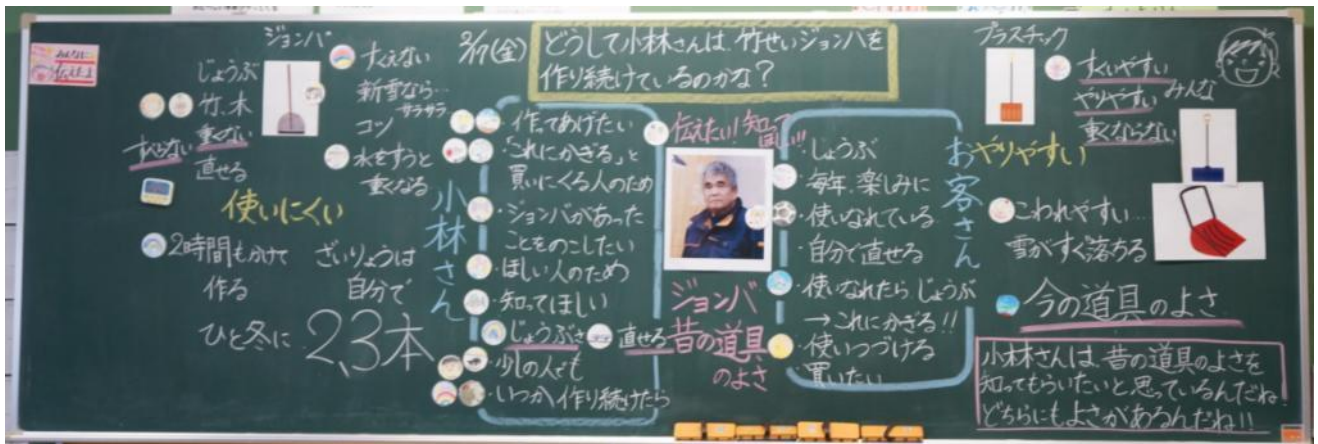 みんなに
伝えたよ
ジョンバ
じょうぶ
竹、木
重くない
すべらない
直せる
すくえない
新雪なら…
サラサラ
コツ
水をすうと
重くなる
使いにくい
2時間もかけて
作る
ざいりょうは
自分で
ひと冬に
2,3本
2/7(金)
どうして小林さんは、竹せいジョンバを
作り続けているのかな?
小林さん
・作ってあげたい
・「これにかぎる」と
買いにくる人のため
・ジョンバがあった
ことをのこしたい
・ほしい人のため
・知ってほしい
・じょうぶさ
直せる
・少しの人でも
・いつか作り続けたら
伝えたい!知って
ジョンバ
昔の道具
のよさ
お客さん
・じょうぶ
・毎年、楽しみに
・使いなれている
・自分で直せる
・使いなれたらじょうぶ
→これにかぎる!!
・使いつづける
・買いたい
プラスチック
すくいやすい
やりやすい
みんな
重くならない
やりやすい
こわれやすい…
雪がすぐ落ちる
今の道具のよさ
小林さんは、昔の道具のよさを
知ってもらいたいと思っているんだね!
どちらにもよさがあるんだね!!